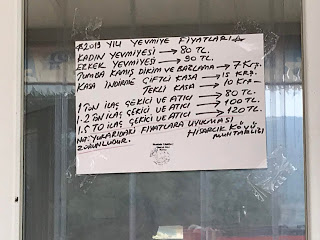 2019 YILI YEVMİYE FİYATLARI
KADIN YEVMİYESİ → 80 TL.
ERKEK YEVMİYESİ → 90 TL.
KAMIŞ DİKİM VE BAĞLAMA → 7 Krş.
KASA İNDİRME ÇİFTLİ KASA → 15 KRŞ.
TEKLİ KASA → 10 Krş
1 TON İLAÇ ÇEKİCİ VE ATICI → 80 TL.
1-2 TON İLAÇ ÇEKİCİ VE ATICI → 100 TL.
İLAÇ ÇEKİCİ VE ATICI → 120 TL.
YUKARIDAKİ FİYATLARA UYULMASI
ZORUNLUDUR.
HİSARCIK KÖYÜ
MUHTARLIĞI